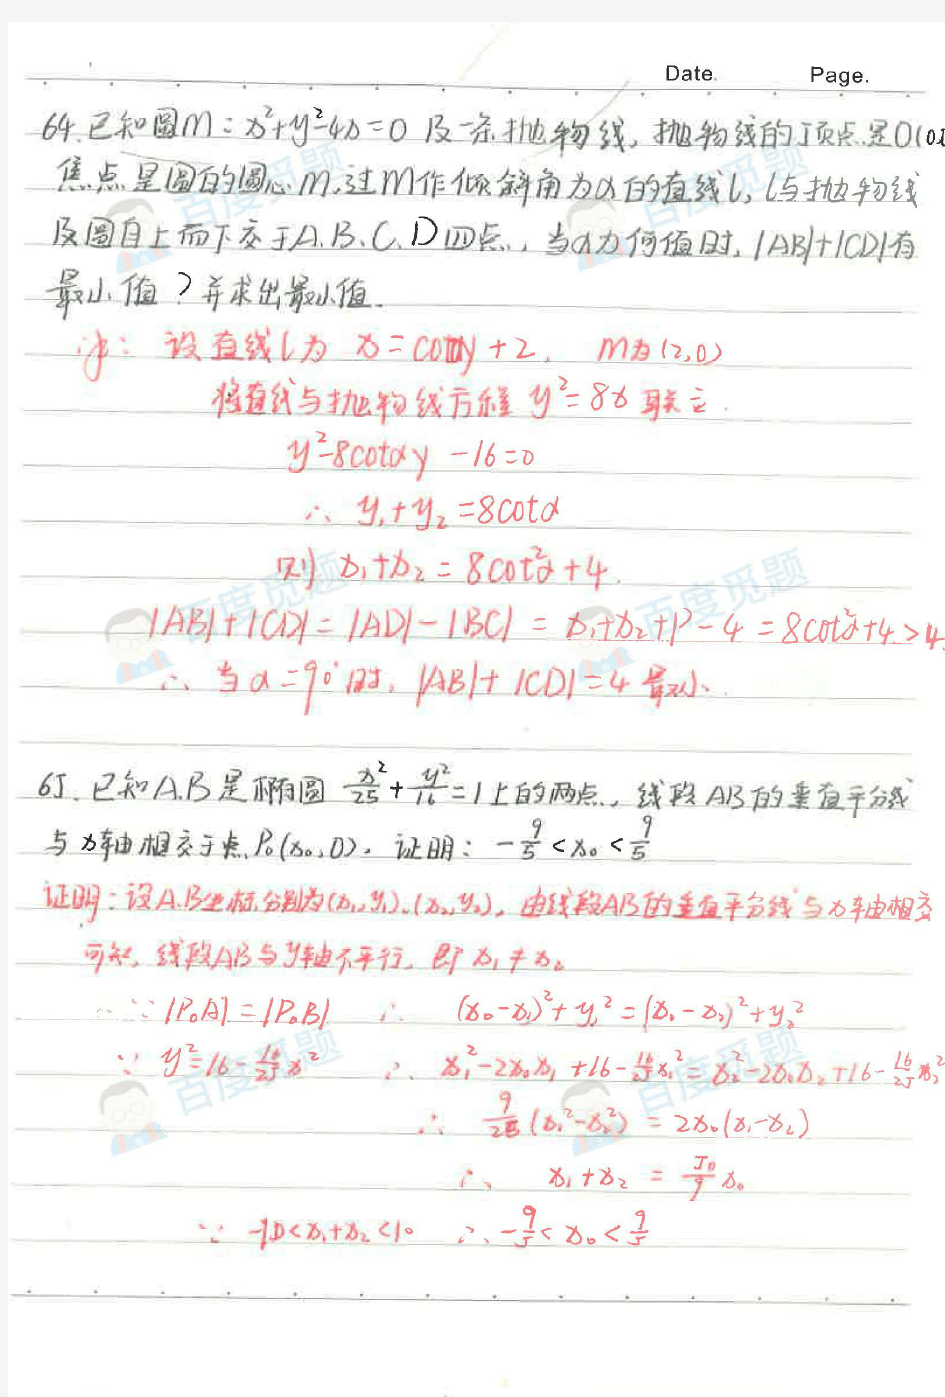 Date. Page.
64. 已知圆M：x²+y²-4x=0 及一条抛物线, 抛物线的顶点是O(0,
焦点是圆的圆心M, 过M作倾斜角为α的直线l, l与抛物线
及圆自上而下交于A、B、C、D四点, 当α为何值时, |AB|+|CD|有
最小值? 并求出最小值.
设直线l为 x=cotαy+2, M为(2,0)
将直线与抛物线方程 y²=8x 联立.
y²-8cotαy-16=0
∴ y₁+y₂=8cotα
则 x₁+x₂=8cot²α+4.
|AB|+|CD|=|AD|-|BC|=x₁+x₂+P-4=8cot²α+4>4.
∴ 当α=90°时, |AB|+|CD|=4 最小.
65. 已知A.B是椭圆 x²/25+y²/16=1上的两点, 线段AB的垂直平分线
与x轴相交于点P₀(x₀,0). 证明: -9/5<x₀<9/5
证明: 设A.B坐标分别为(x₁,y₁)、(x₂,y₂), 由线段AB的垂直平分线与x轴相交
可知, 线段AB与y轴不平行, 即 x₁≠x₂
∵ |P₀A|=|P₀B| ∴ (x₀-x₁)²+y₁²=(x₀-x₂)²+y₂²
∵ y²=16-16/25x² ∴ x₁²-2x₀x₁+16-16/25x₁²=x₂²-2x₀x₂+16-16/25x₂²
∴ 9/25(x₁²-x₂²)=2x₀(x₁-x₂)
∴ x₁+x₂=50/9x₀
∵ -10<x₁+x₂<10 ∴ -9/5<x₀<9/5
百度觅题
百度觅题
百度觅题
百度觅题
百度觅题
百度觅题